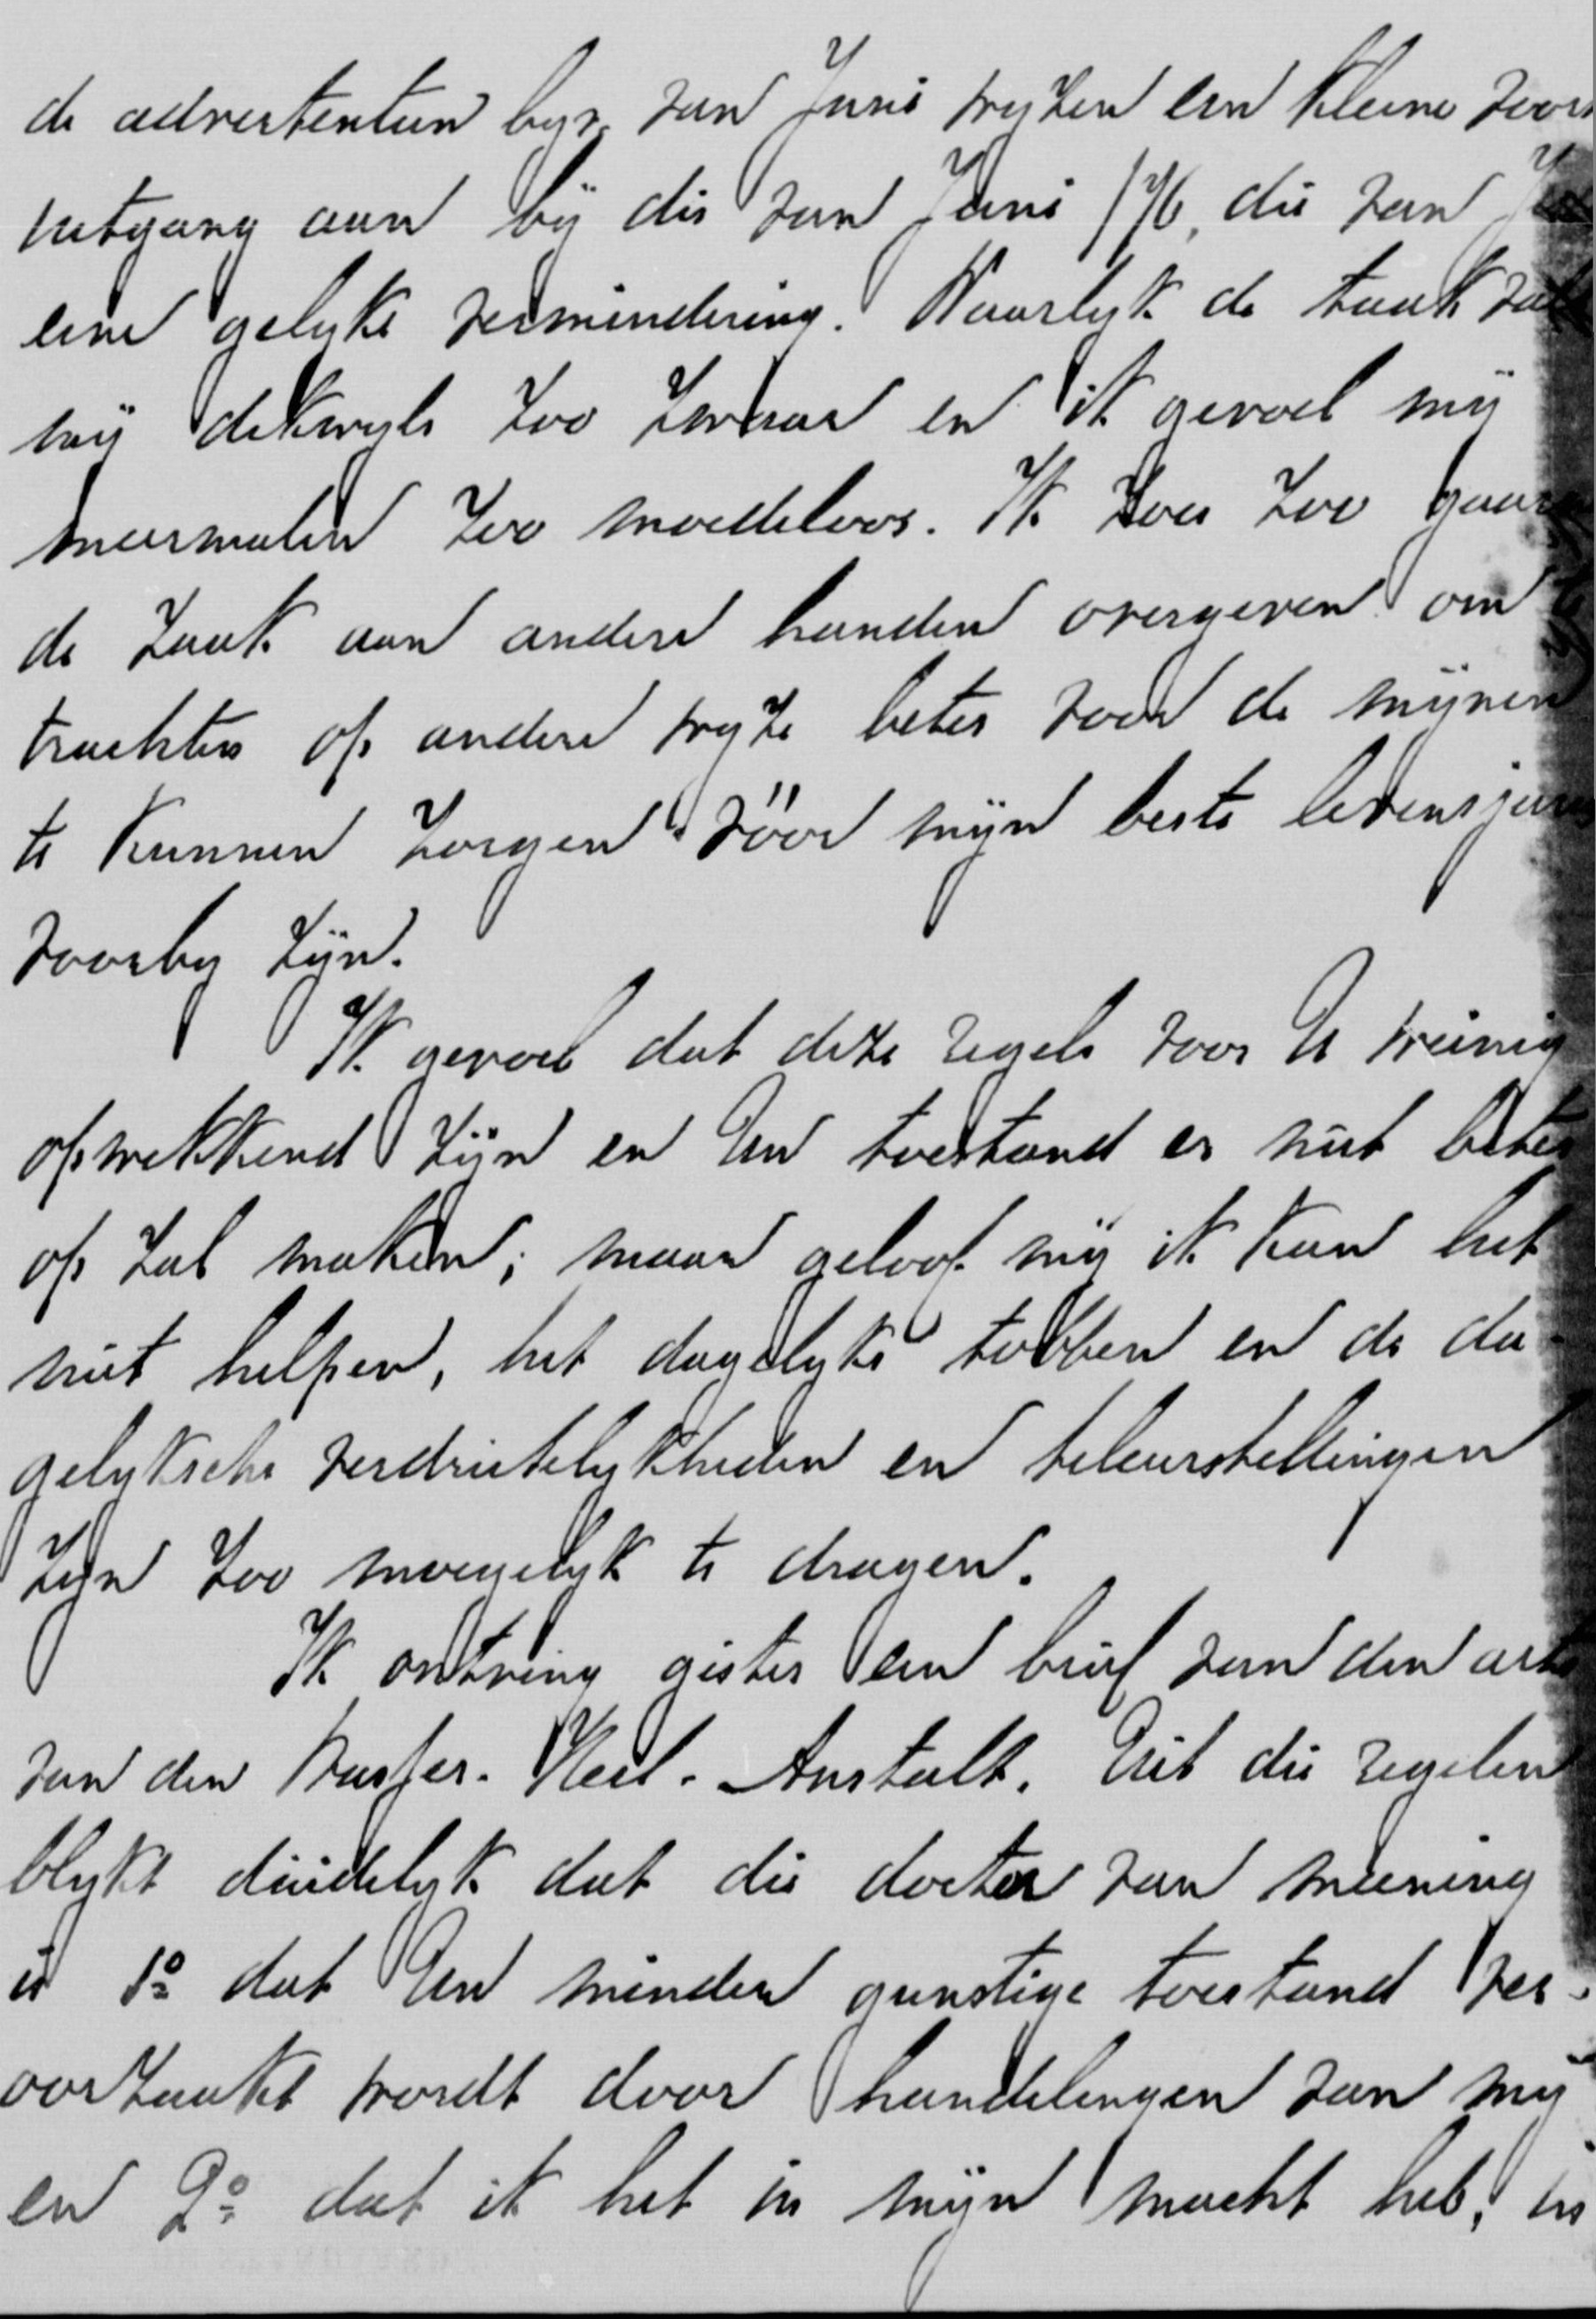 de advertentien byv. van Juni wyzen een kleine voor
uitgang aan bÿ die van Juni /76, die van
eene gelyke vermindering. Waarlyk de taak valt
mÿ dikwyls zoo zwaar en ik gevoel mÿ
meermalen zoo moedeloos. Ik zou zoo gaar
de zaak aan andere handen overgeven om
trachten op andere wyze beter voor de mÿnen
te kunnen zorgen vóór mÿn beste levensjaren
voorby zÿn.
Ik gevoel dat deze regels voor U weinig
opwekkend zÿn en Uw toestand er niet beter
op zal maken; maar geloof mÿ ik kan het
niet helpen, het dagelyks tobben en de da-
gelyksche verdrietelykheden en teleurstellingen
zyn zoo moeyelyk te dragen.
Ik ontving gister een brief van den arts
van den Wasser-Heil-Anstalt. Uit die regelen
blykt duidelyk dat die doctor van meening
is 1º dat Uw minder gunstige toestand ver-
oorzaakt wordt door handelingen van mÿ
en 2º dat ik het in mÿn macht heb, in